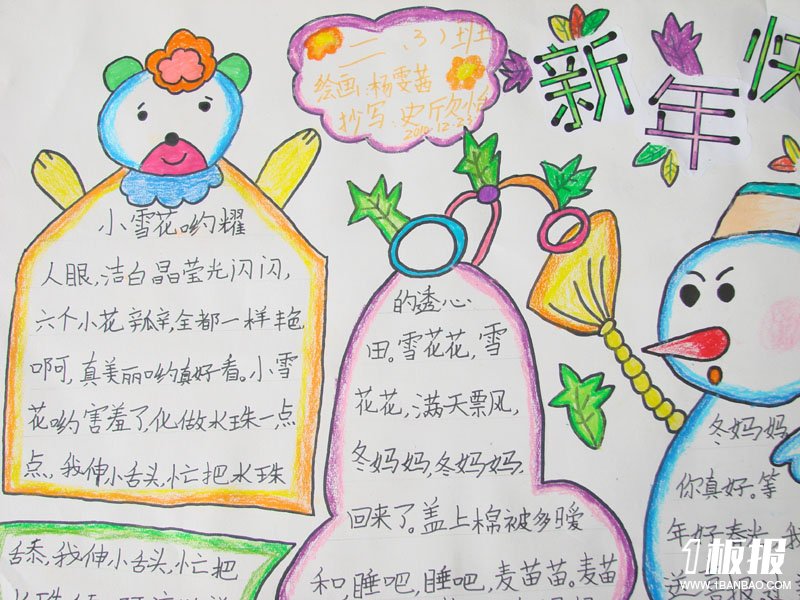 二、(3)班
绘画:杨雯茜
抄写:史欣怡
新年快
小雪花哟耀
人眼,洁白晶莹光闪闪,
六个小花瓣,全都一样艳
啊呵,真美丽哟真好看。小雪
花哟害羞了化做水珠一点
点,我伸小舌头,忙把水珠
舔,我伸小舌头,忙把
的透心
田。雪花花,雪
花花,满天票风,
冬妈妈,冬妈妈
回来了。盖上棉被多暖
和睡吧,睡吧,麦苗苗。麦苗
冬妈妈
你真好。等
年好春光,我
1板报
WWW.1BANBAO.COM